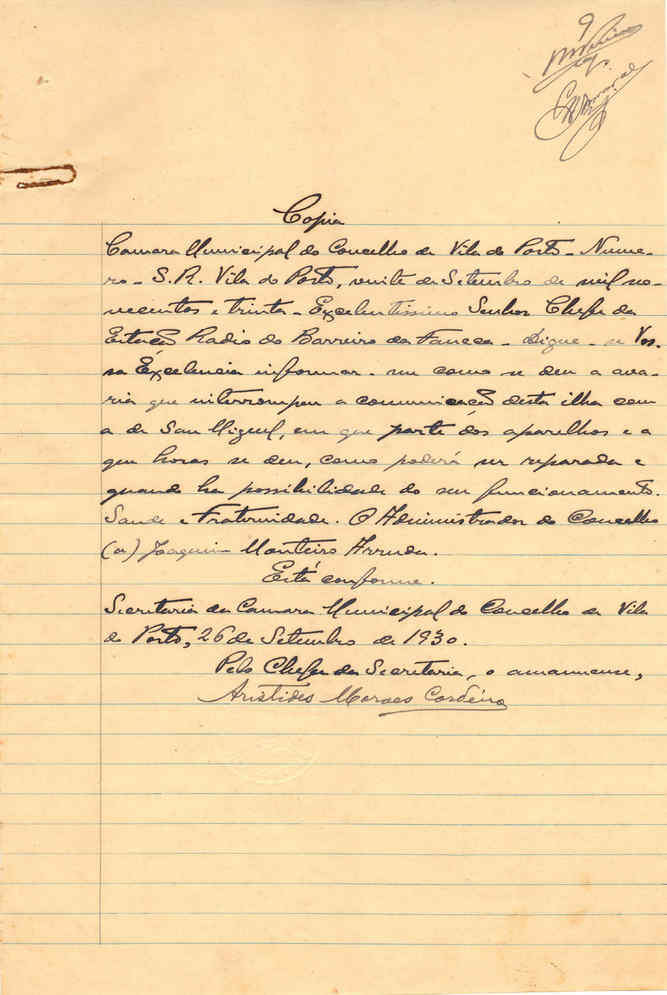 9
Copia
Camara Municipal do Concelho de Vila do Porto - Nume-
ro - S.R. Vila do Porto, vinte de Setembro de mil no-
vecentos e trinta - Excelentissimo Senhor Chefe da
Estação Radio do Barreiro da Faneca - Digne - se Vos-
sa Excelencia informar - me como se deu a ava-
ria que interrompeu a comunicação desta ilha com
a de San Miguel, em que parte dos aparelhos e a
que horas se deu, como poderá ser reparada e
quando ha possibilidade do seu funcionamento.
Saude e Fraternidade. O Administrador do Concelho
(a) Joaquim Monteiro Arruda.
Está conforme.
Secretaria da Camara Municipal do Concelho de Vila
do Porto, 26 de Setembro de 1930.
Pelo Chefe da Secretaria, o amanuense,
Aristides Moraes Cordeiro